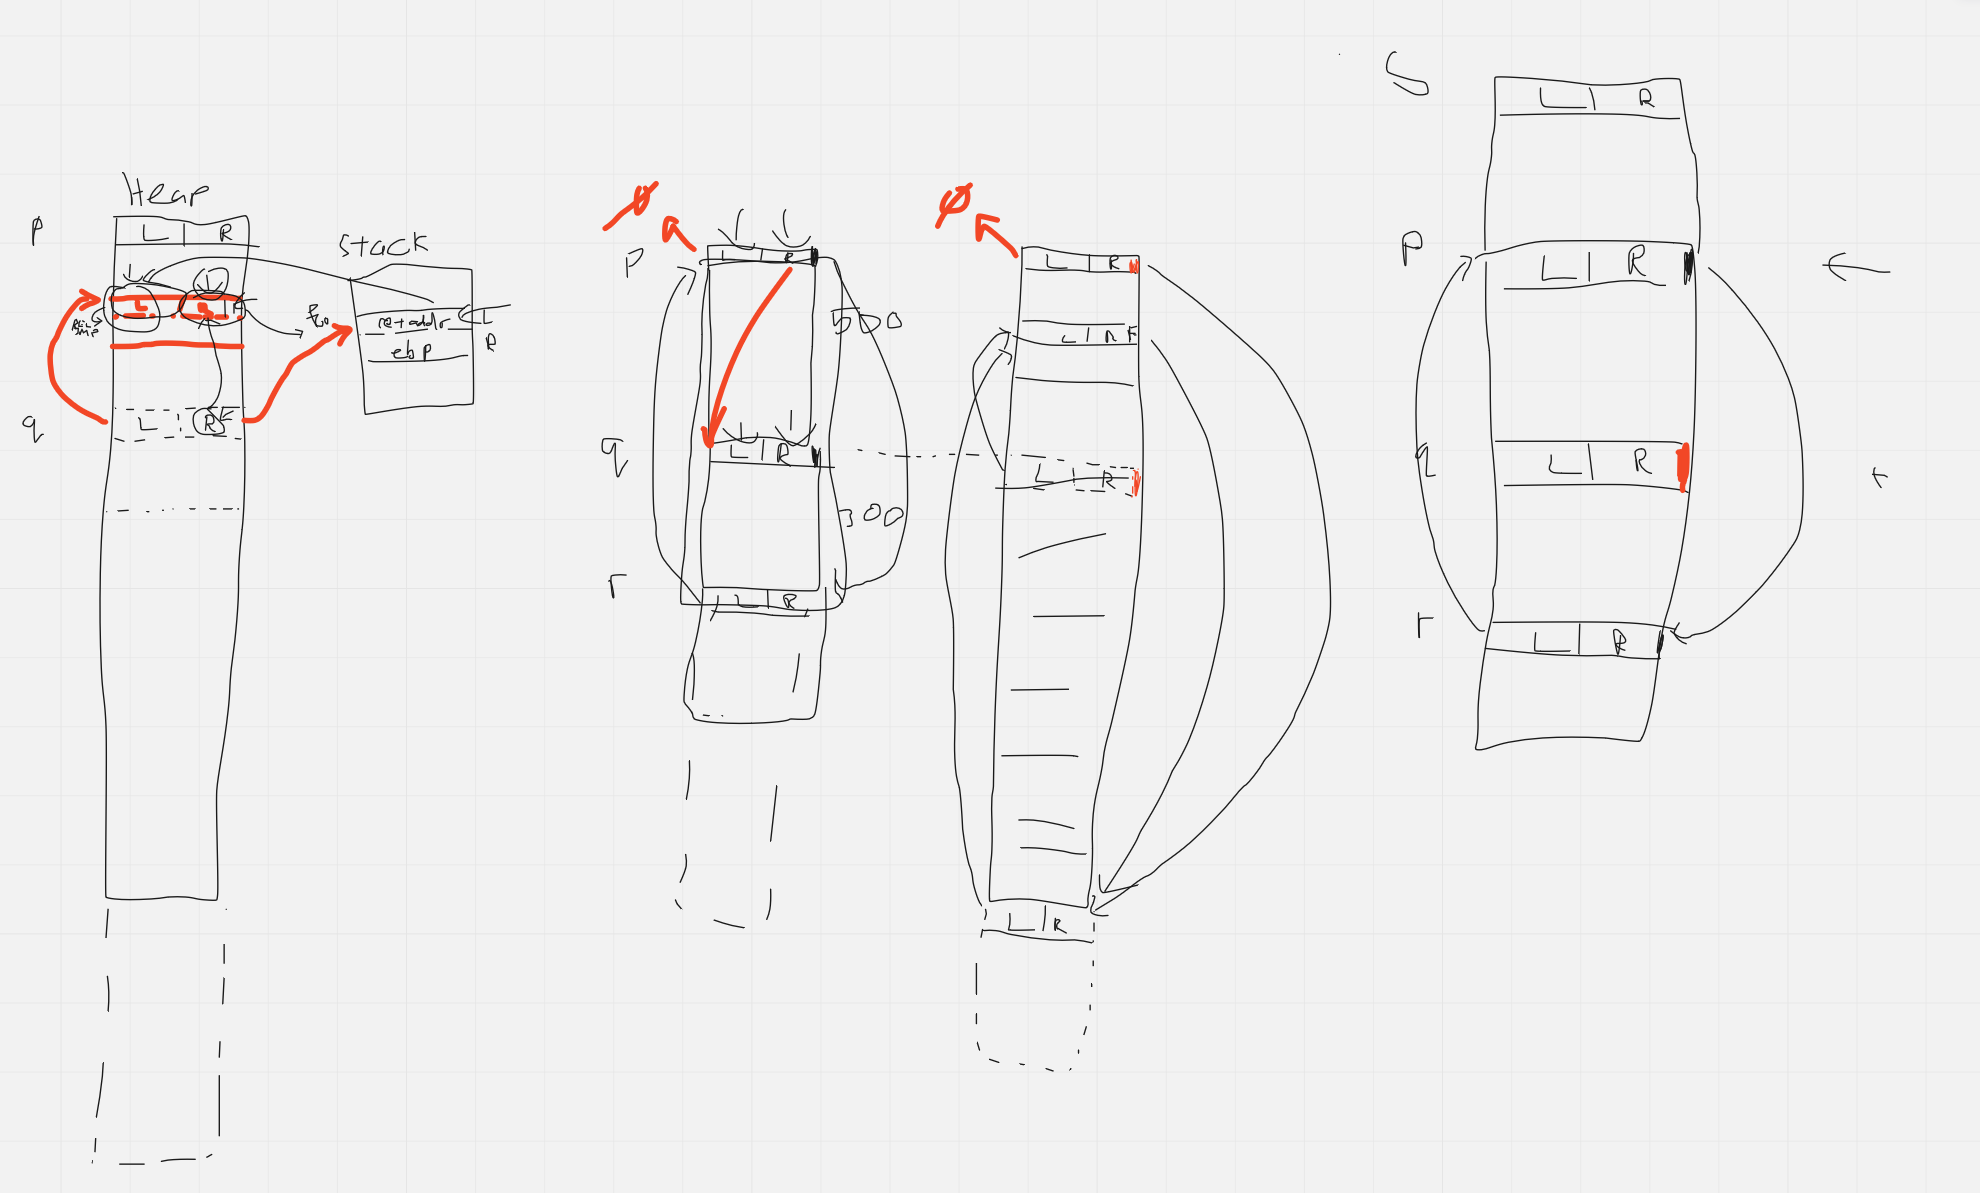 Heap
P
L R
Stack
L
ret addr
R
ebp
q
L R F
P
L R
500
q
L R
300
r
L R
L R
L R F
L R
L R
S
L R
P
L R
q
L R
r
L R